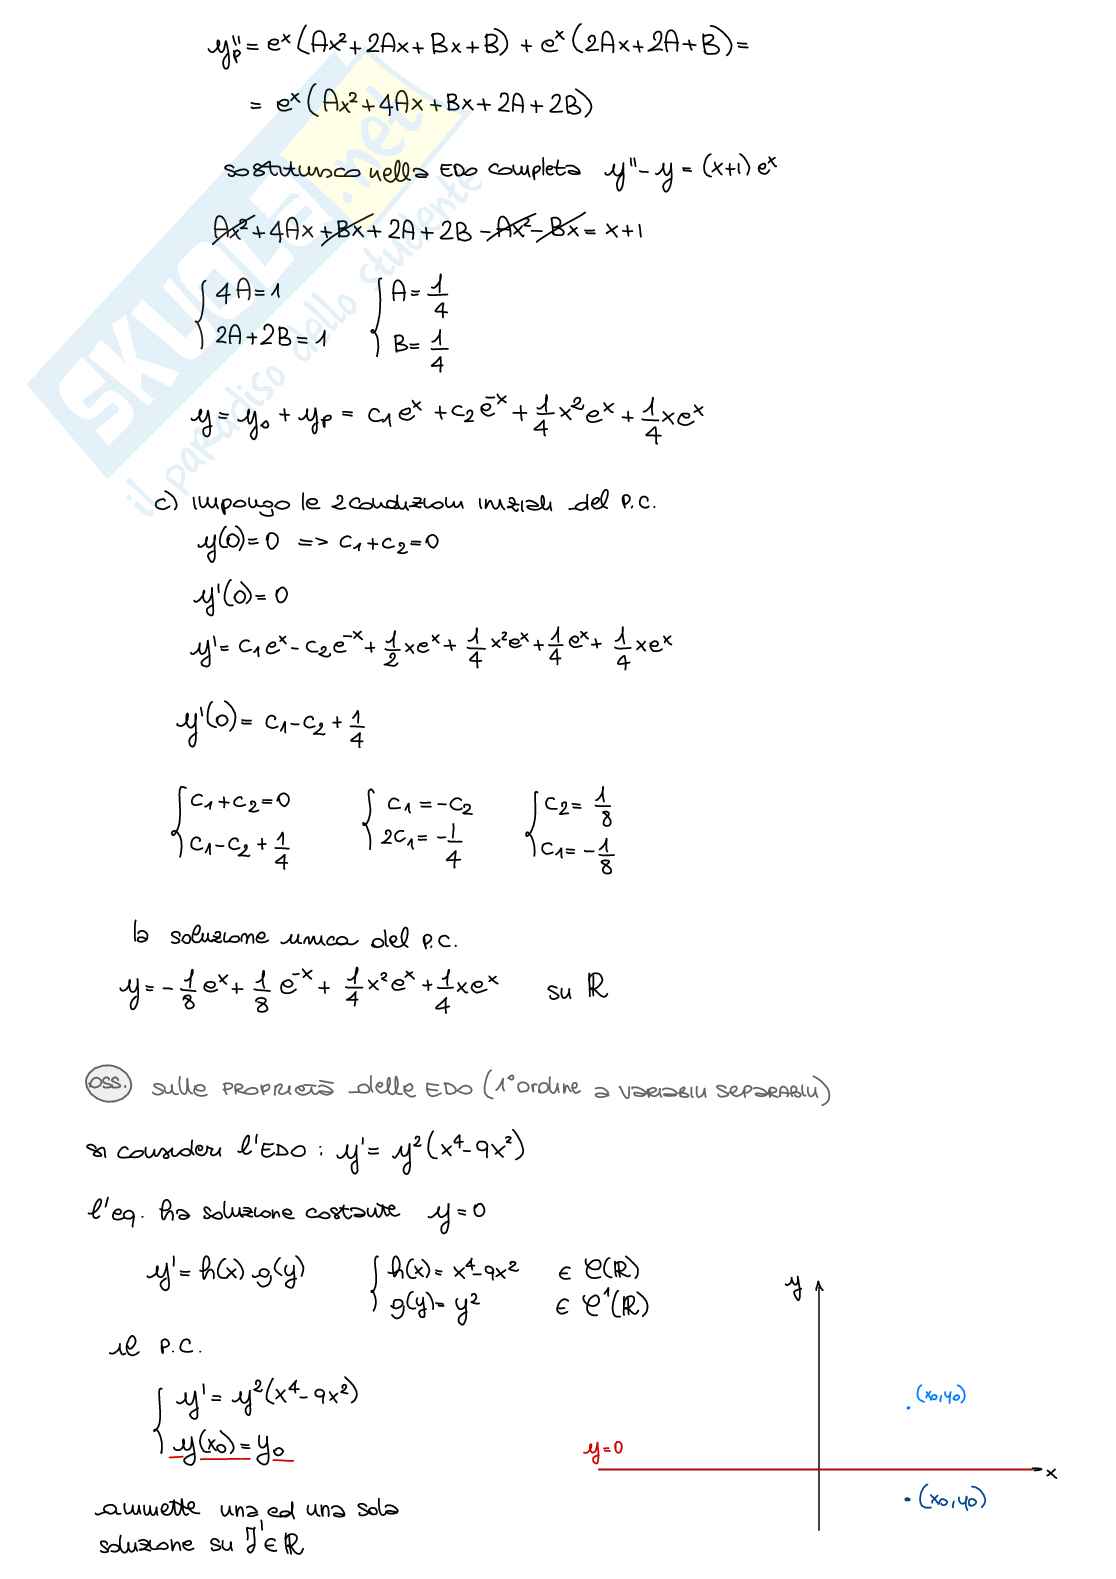 y"p = eˣ(Ax²+2Ax+Bx+B) + eˣ(2Ax+2A+B)=
= eˣ(Ax²+4Ax+Bx+2A+2B)
sostituisco nella EDO completa y"-y=(x+1)eˣ
Ax²+4Ax+Bx+2A+2B-Ax²-Bx=x+1
{4A=1 {A=1/4
2A+2B=1 B=1/4
y=y₀+yp = c₁eˣ+c₂e⁻ˣ+1/4x²eˣ+1/4xeˣ
c) impongo le 2 condizioni iniziali del P.C.
y(0)=0 => c₁+c₂=0
y'(0)=0
y'=c₁eˣ-c₂e⁻ˣ+1/2xeˣ+1/4x²eˣ+1/4eˣ+1/4xeˣ
y'(0)=c₁-c₂+1/4
{c₁+c₂=0 {c₁=-c₂ {c₂=1/8
c₁-c₂+1/4 2c₁=-1/4 c₁=-1/8
la soluzione unica del P.C.
y=-1/8eˣ+1/8e⁻ˣ+1/4x²eˣ+1/4xeˣ su ℝ
OSS. sulle PROPRIETÀ delle EDO (1° ordine a VARIABILI SEPARABILI)
si consideri l'EDO: y'=y²(x⁴-9x²)
l'eq. ha soluzione costante y=0
y'=h(x)·g(y) {h(x)=x⁴-9x² ∈ C(ℝ)
g(y)=y² ∈ C¹(ℝ)
y
il P.C.
{y'=y²(x⁴-9x²)
y(x₀)=y₀
(x₀,y₀)
y=0
x
(x₀,y₀)
ammette una ed una sola
soluzione su J'∈ℝ
SKUOLA.net
il paradiso dello studente